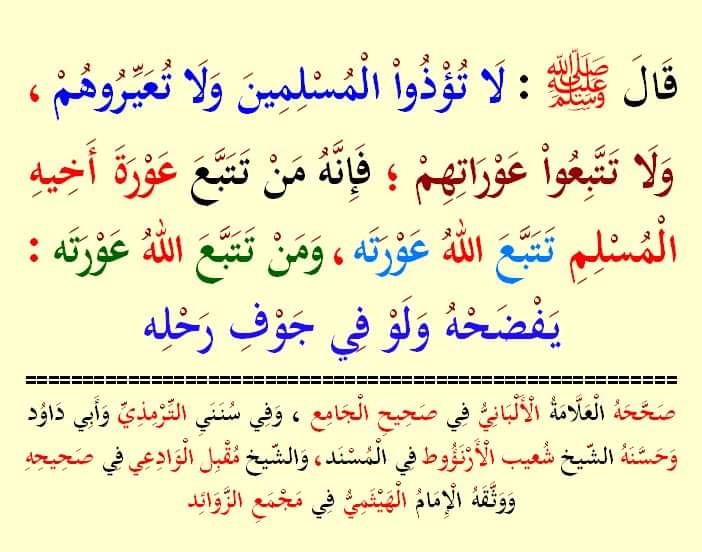 قَالَ ﷺ : لَا تُؤْذُواْ الْمُسْلِمِينَ وَلَا تُعَيِّرُوهُمْ ،
وَلَا تَتَّبِعُواْ عَوْرَاتِهِمْ ؛ فَإِنَّهُ مَنْ تَتَبَّعَ عَوْرَةَ أَخِيهِ
الْمُسْلِمِ تَتَبَّعَ اللهُ عَوْرَتَه ، وَمَنْ تَتَبَّعَ اللهُ عَوْرَتَه :
يَفْضَحْهُ وَلَوْ فِي جَوْفِ رَحْلِه
صَحَّحَهُ الْعَلَّامَةُ الْأَلْبَانِيُّ فِي صَحِيحِ الْجَامِعِ ، وَفِي سُنَنَيِ التِّرْمِذِيِّ وَأَبِي دَاوُد
وَحَسَّنَهُ الشَّيخ شُعيب الْأَرْنَؤُوط فِي الْمُسْنَد، وَالشَّيخ مُقْبِل الْوَادِعِي فِي صَحِيحِهِ
وَوَثَّقَهُ الْإِمَامُ الْهَيْثَمِيُّ فِي مَجْمَعِ الزَّوَائِد